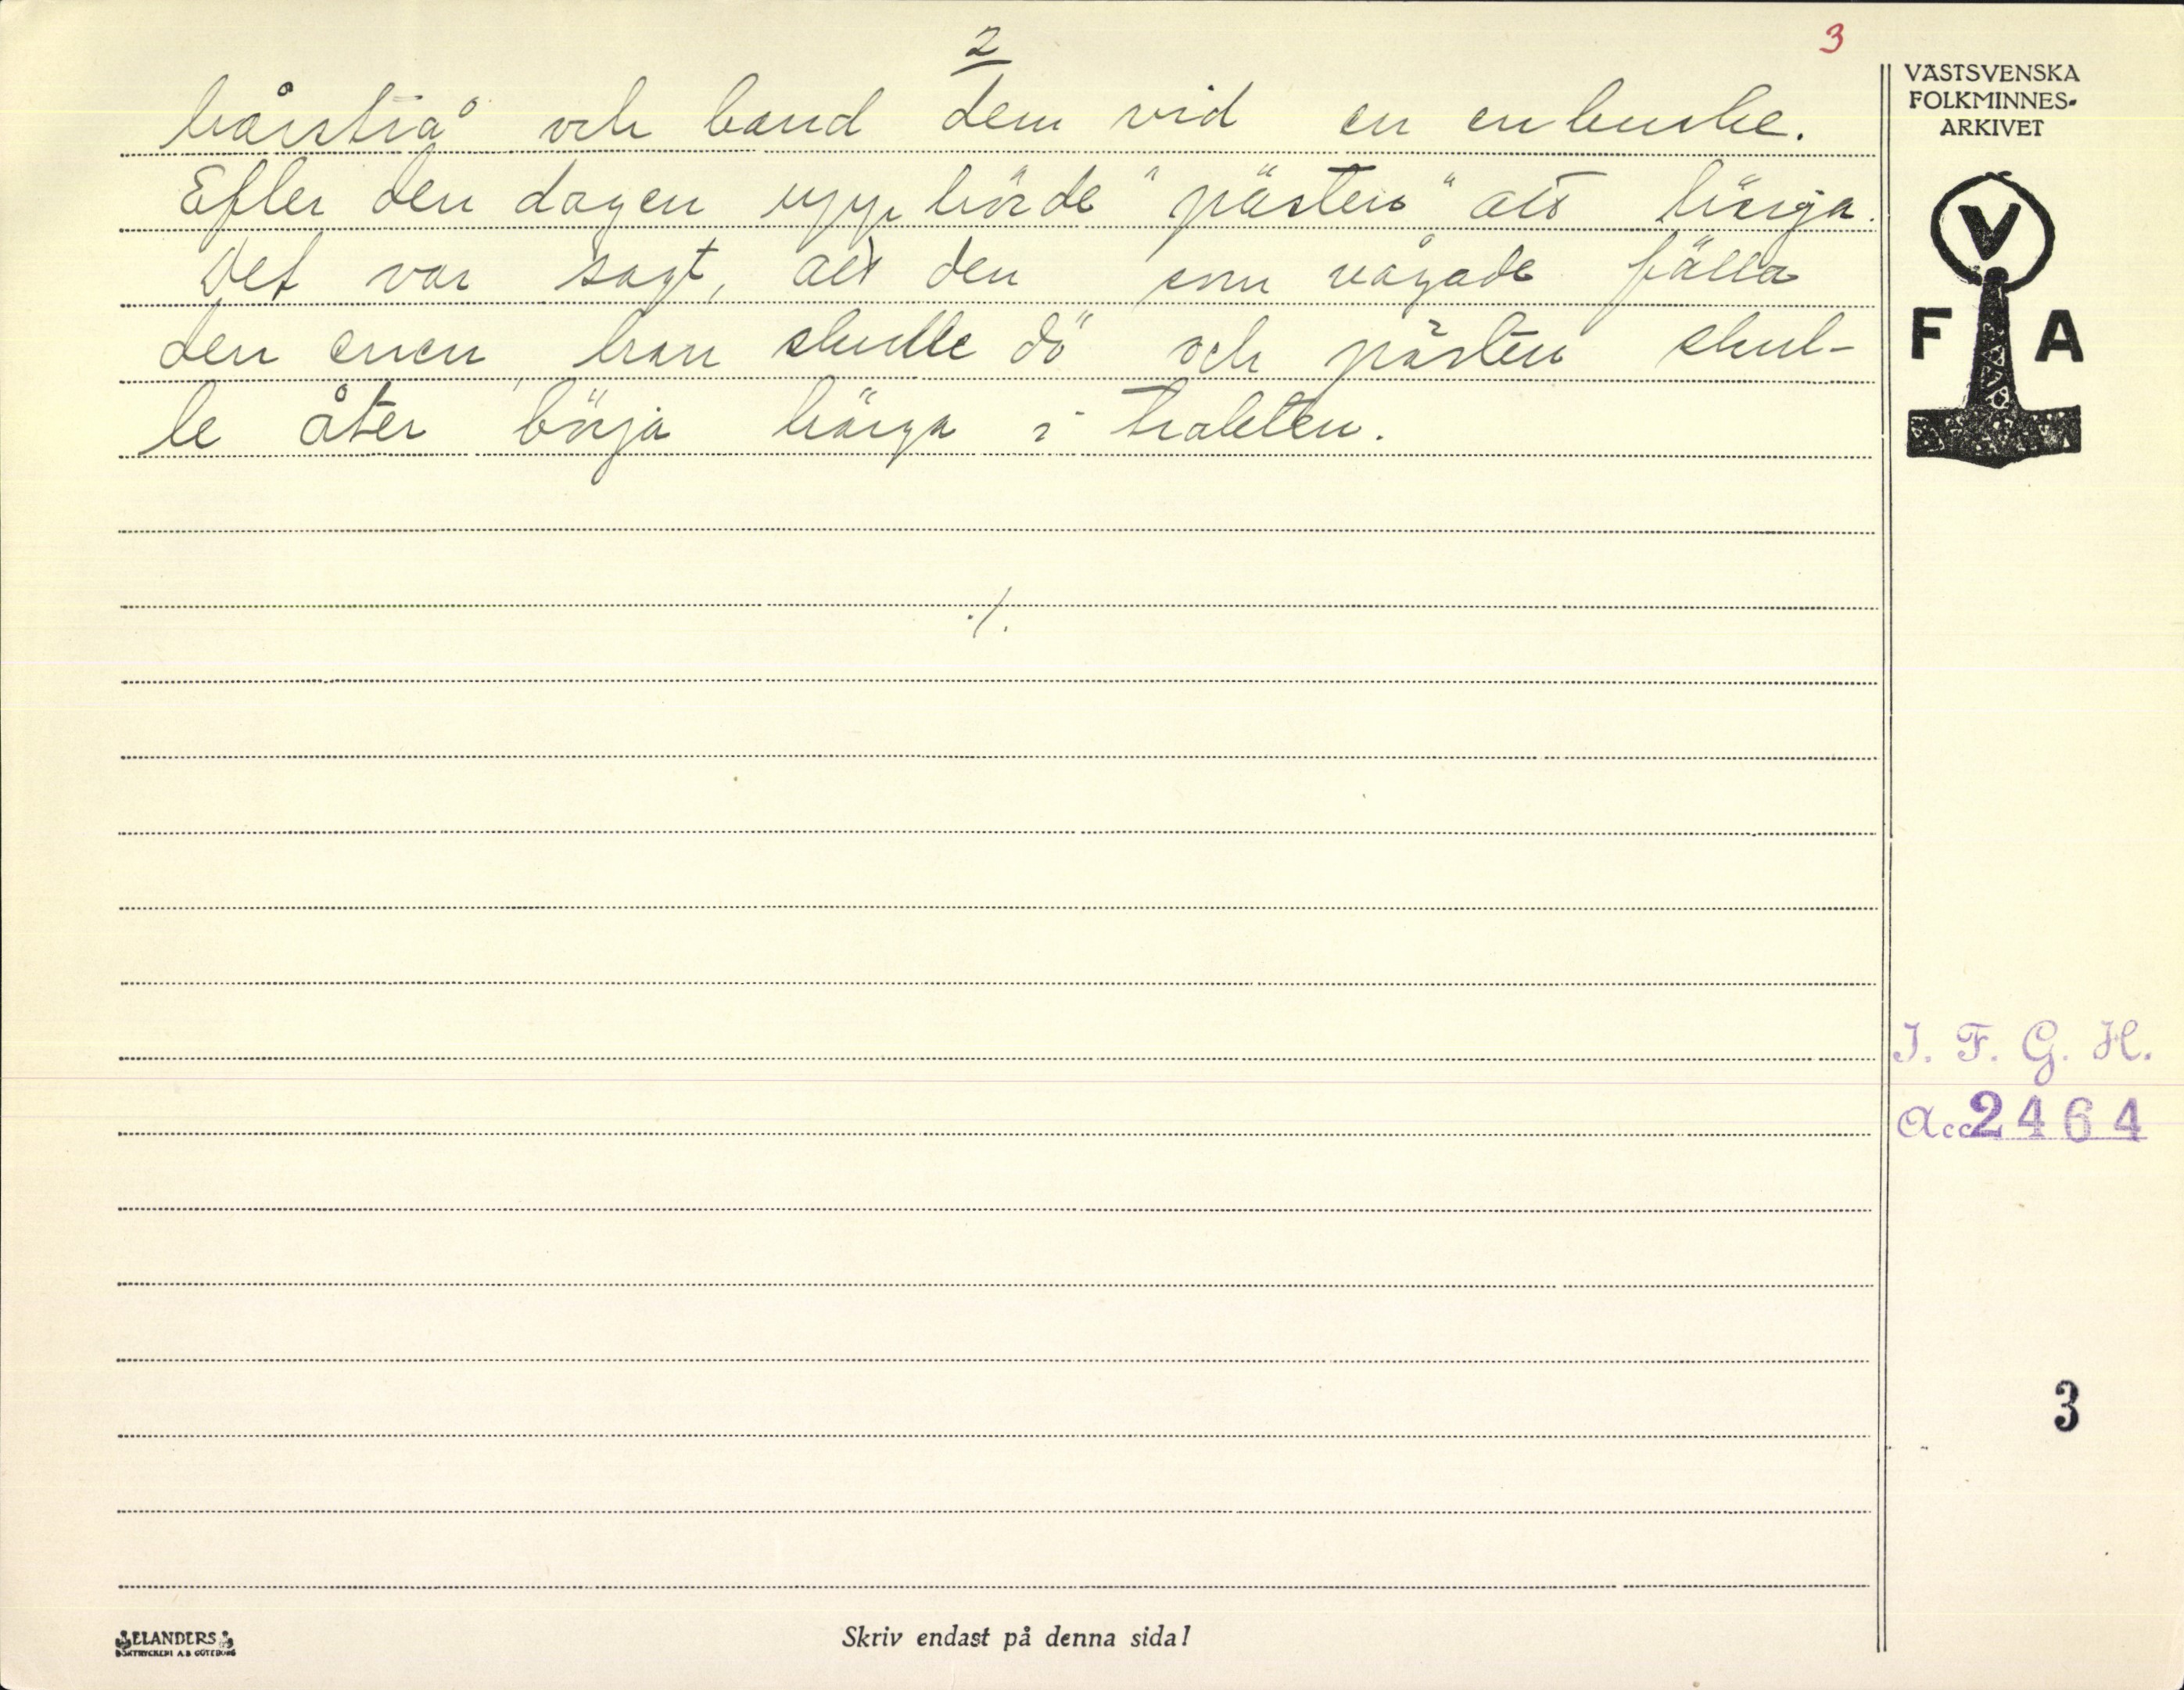 2
3
hårstrå och band dem vid en enbuske.
Efter den dagen upphörde "pästen" att härja.
Det var sagt, att den som vågade fälla
den enen, han skulle dö och pästen skul-
le åter börja härja i trakten.
./.
VÄSTSVENSKA
FOLKMINNES-
ARKIVET
V
F A
I. F. G. H.
Acc 2464
3
ELANDERS
BOKTRYCKERI A.B. GÖTEBORG
Skriv endast på denna sida!